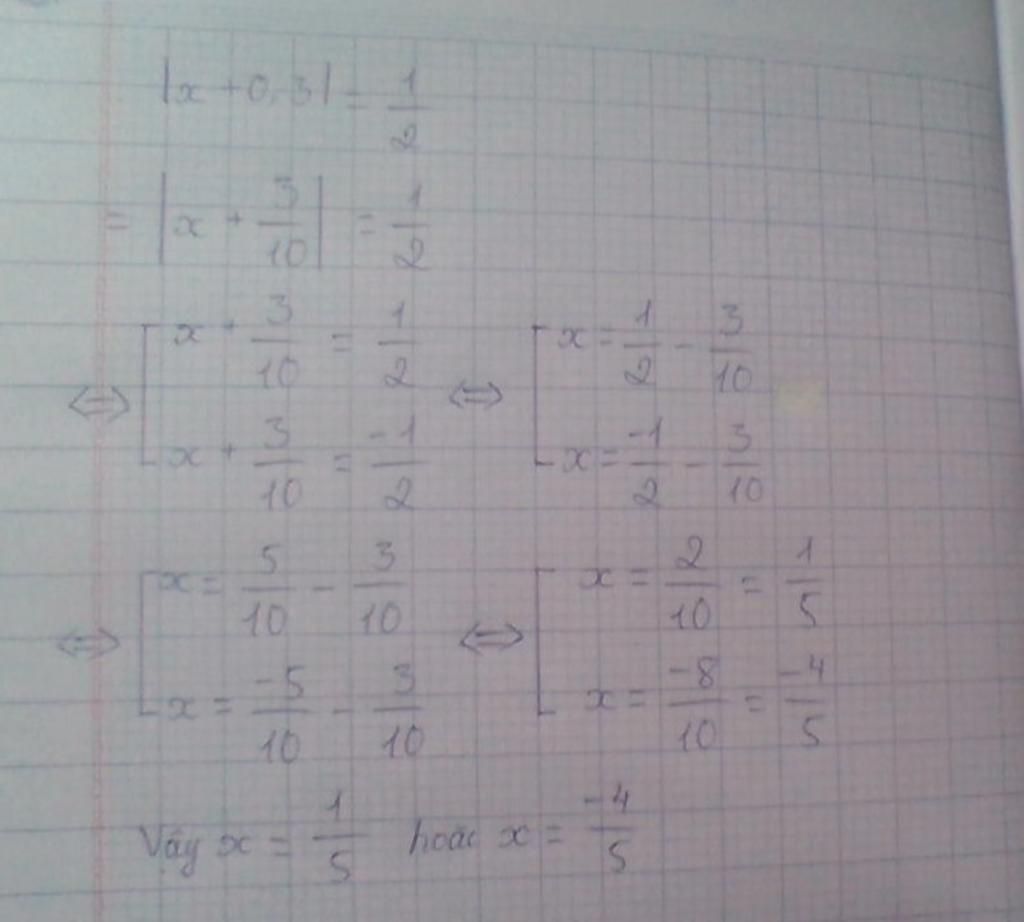 |x + 0,3| = 1/2
= |x + 3/10| = 1/2
⇔ [ x + 3/10 = 1/2 ⇔ [ x = 1/2 - 3/10
x + 3/10 = -1/2 x = -1/2 - 3/10
⇔ [ x = 5/10 - 3/10 ⇔ [ x = 2/10 = 1/5
x = -5/10 - 3/10 x = -8/10 = -4/5
Vậy x = 1/5 hoặc x = -4/5